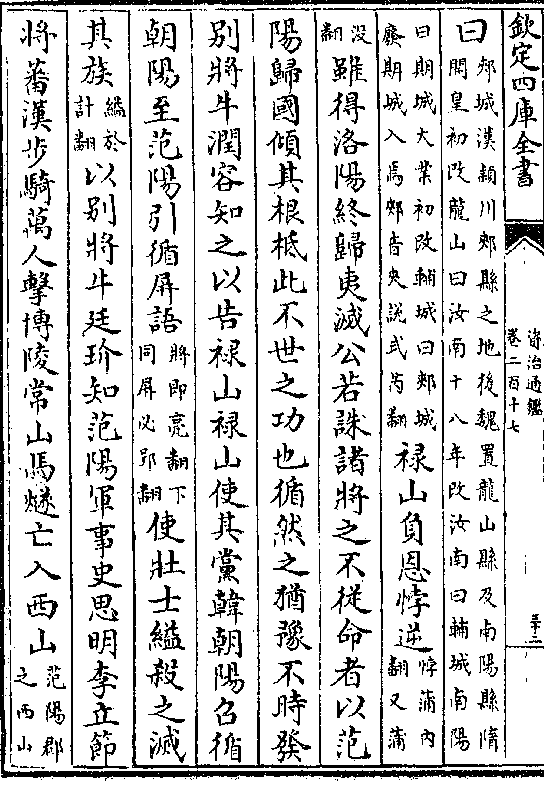 欽定四庫全書
資治通鑑
卷二百十七
曰郟城漢潁川郟縣之地後魏置龍山縣及南陽縣隋
開皇初改龍山曰汝南十八年改汝南曰輔城南陽
曰期城大業初改輔城曰郟城
廢期城入焉郟音夾說式芮翻
祿山負恩悖逆悖蒲內
翻又蒲
沒
翻
雖得洛陽終歸夷滅公若誅諸將之不從命者以范
陽歸國傾其根柢此不世之功也循然之猶豫不時發
別將牛潤容知之以告祿山祿山使其黨韓朝陽召循
朝陽至范陽引循屏語將即亮翻下
同屏必郢翻
使壯士縊殺之滅
其族縊於
計翻
以別將牛廷玠知范陽軍事史思明李立節
將蕃漢步騎萬人擊博陵常山馬燧亡入西山范陽郡
之西山